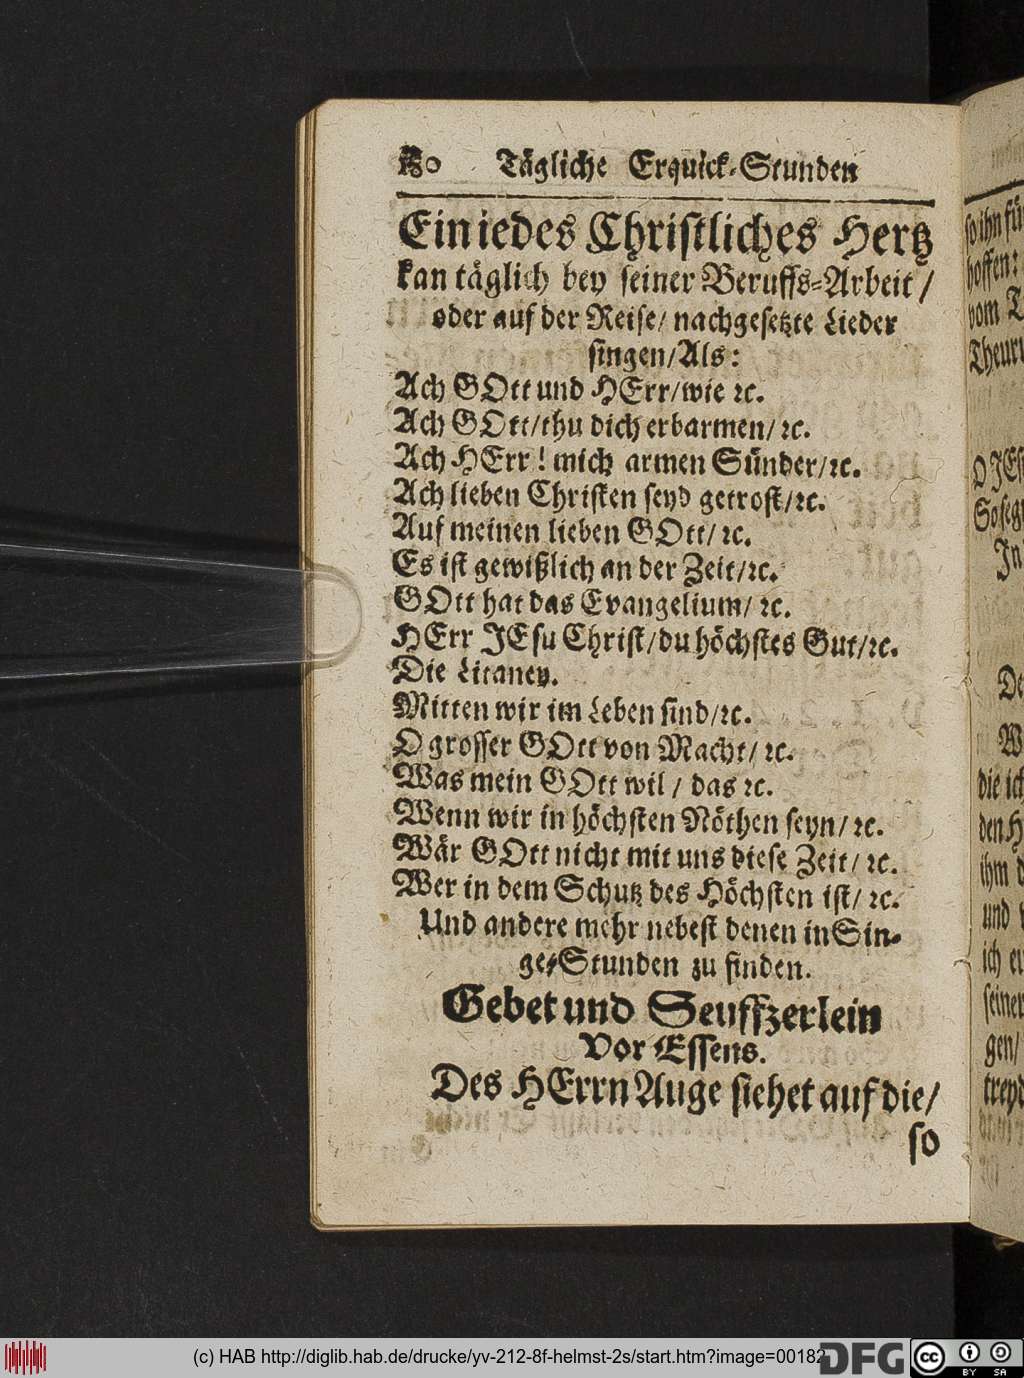 Tägliche Erquick-Stunden
Ein iedes Christliches Hertz
kan täglich bey seiner Beruffs-Arbeit/
oder auf der Reise/ nachgesetzte Lieder
singen/Als:
Ach GOtt und HErr/wie ꝛc.
Ach GOtt/thu dich erbarmen/ ꝛc.
Ach HErr! mich armen Sünder/ꝛc.
Ach lieben Christen seyd getrost/ꝛc.
Auf meinen lieben GOtt/ ꝛc.
Es ist gewißlich an der Zeit/ꝛc.
GOtt hat das Evangelium/ ꝛc.
HErr JEsu Christ/du höchstes Gut/ꝛc.
Die Litaney.
Mitten wir im Leben sind/ꝛc.
O grosser GOtt von Macht/ ꝛc.
Was mein GOtt wil / das ꝛc.
Wenn wir in höchsten Nöthen seyn/ ꝛc.
Wär GOtt nicht mit uns diese Zeit/ ꝛc.
Wer in dem Schutz des Höchsten ist/ ꝛc.
Und andere mehr nebest denen in Sin-
ge-Stunden zu finden.
Gebet und Seuffzerlein
Vor Essens.
Des HErrn Auge siehet auf die/
so
so ihn fü
hoffen:
vom T
Theuru
O JEs
So seg
In
De
W
die ich
den H
ihm d
und
ich er
seiner
gen/
treyd
(c) HAB http://diglib.hab.de/drucke/yv-212-8f-helmst-2s/start.htm?image=00182
DFG
cc BY SA